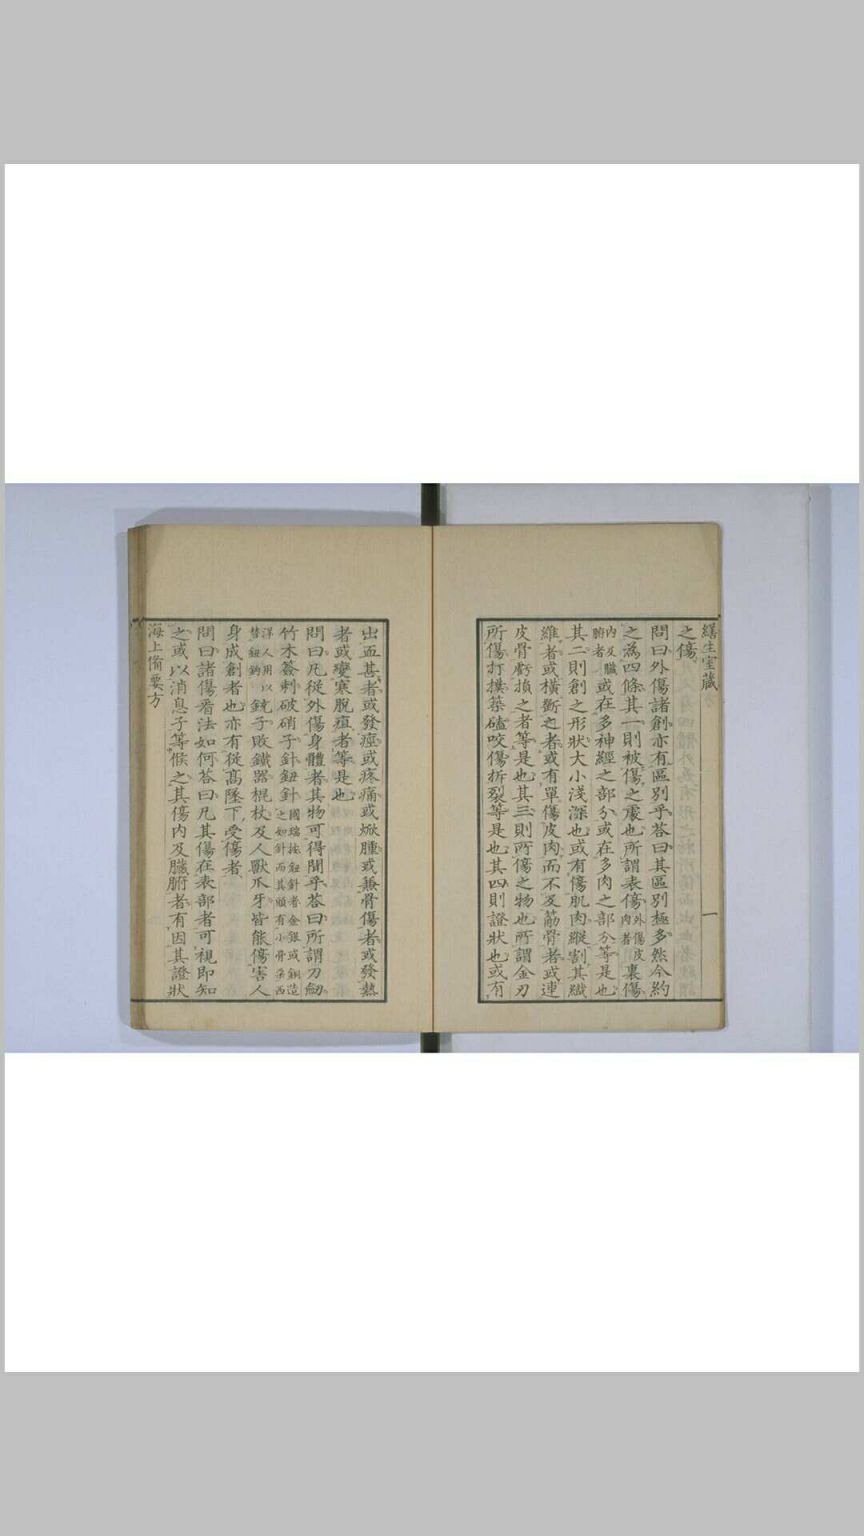 繕生室藏
一
之傷
問曰外傷諸創亦有區別乎荅曰其區別極多然今約
之為四條其一則被傷之處也所謂表傷外傷皮肉者裏傷
內及臟腑者或在多神經之部分或在多肉之部分等是也
其二則創之形狀大小淺深也或有傷肌肉縱割其纖
維者或橫斷之者或有單傷皮肉而不及筋骨者或連
皮骨虧損之者等是也其三則所傷之物也所謂金刃
所傷打撲築磕咬傷折裂等是也其四則證狀也或有
出血甚者或發痙或疼痛或焮腫或兼骨傷者或發熱
者或變寒脫疽者等是也
問曰凡從外傷身體者其物可得聞乎荅曰所謂刀劒
竹木簽刺破硝子針鈕針國瑞按鈕針者金銀或銅造之如針而其頭有小骨朵西
洋人用以替鈕鈎鏡子敗鐵器棍杖及人獸爪牙皆能傷害人
身成創者也亦有從高墜下受傷者
問曰諸傷看法如何荅曰凡其傷在表部者可視即知
之或以消息子等候之其傷內及臟腑者有因其證狀
海上備要方